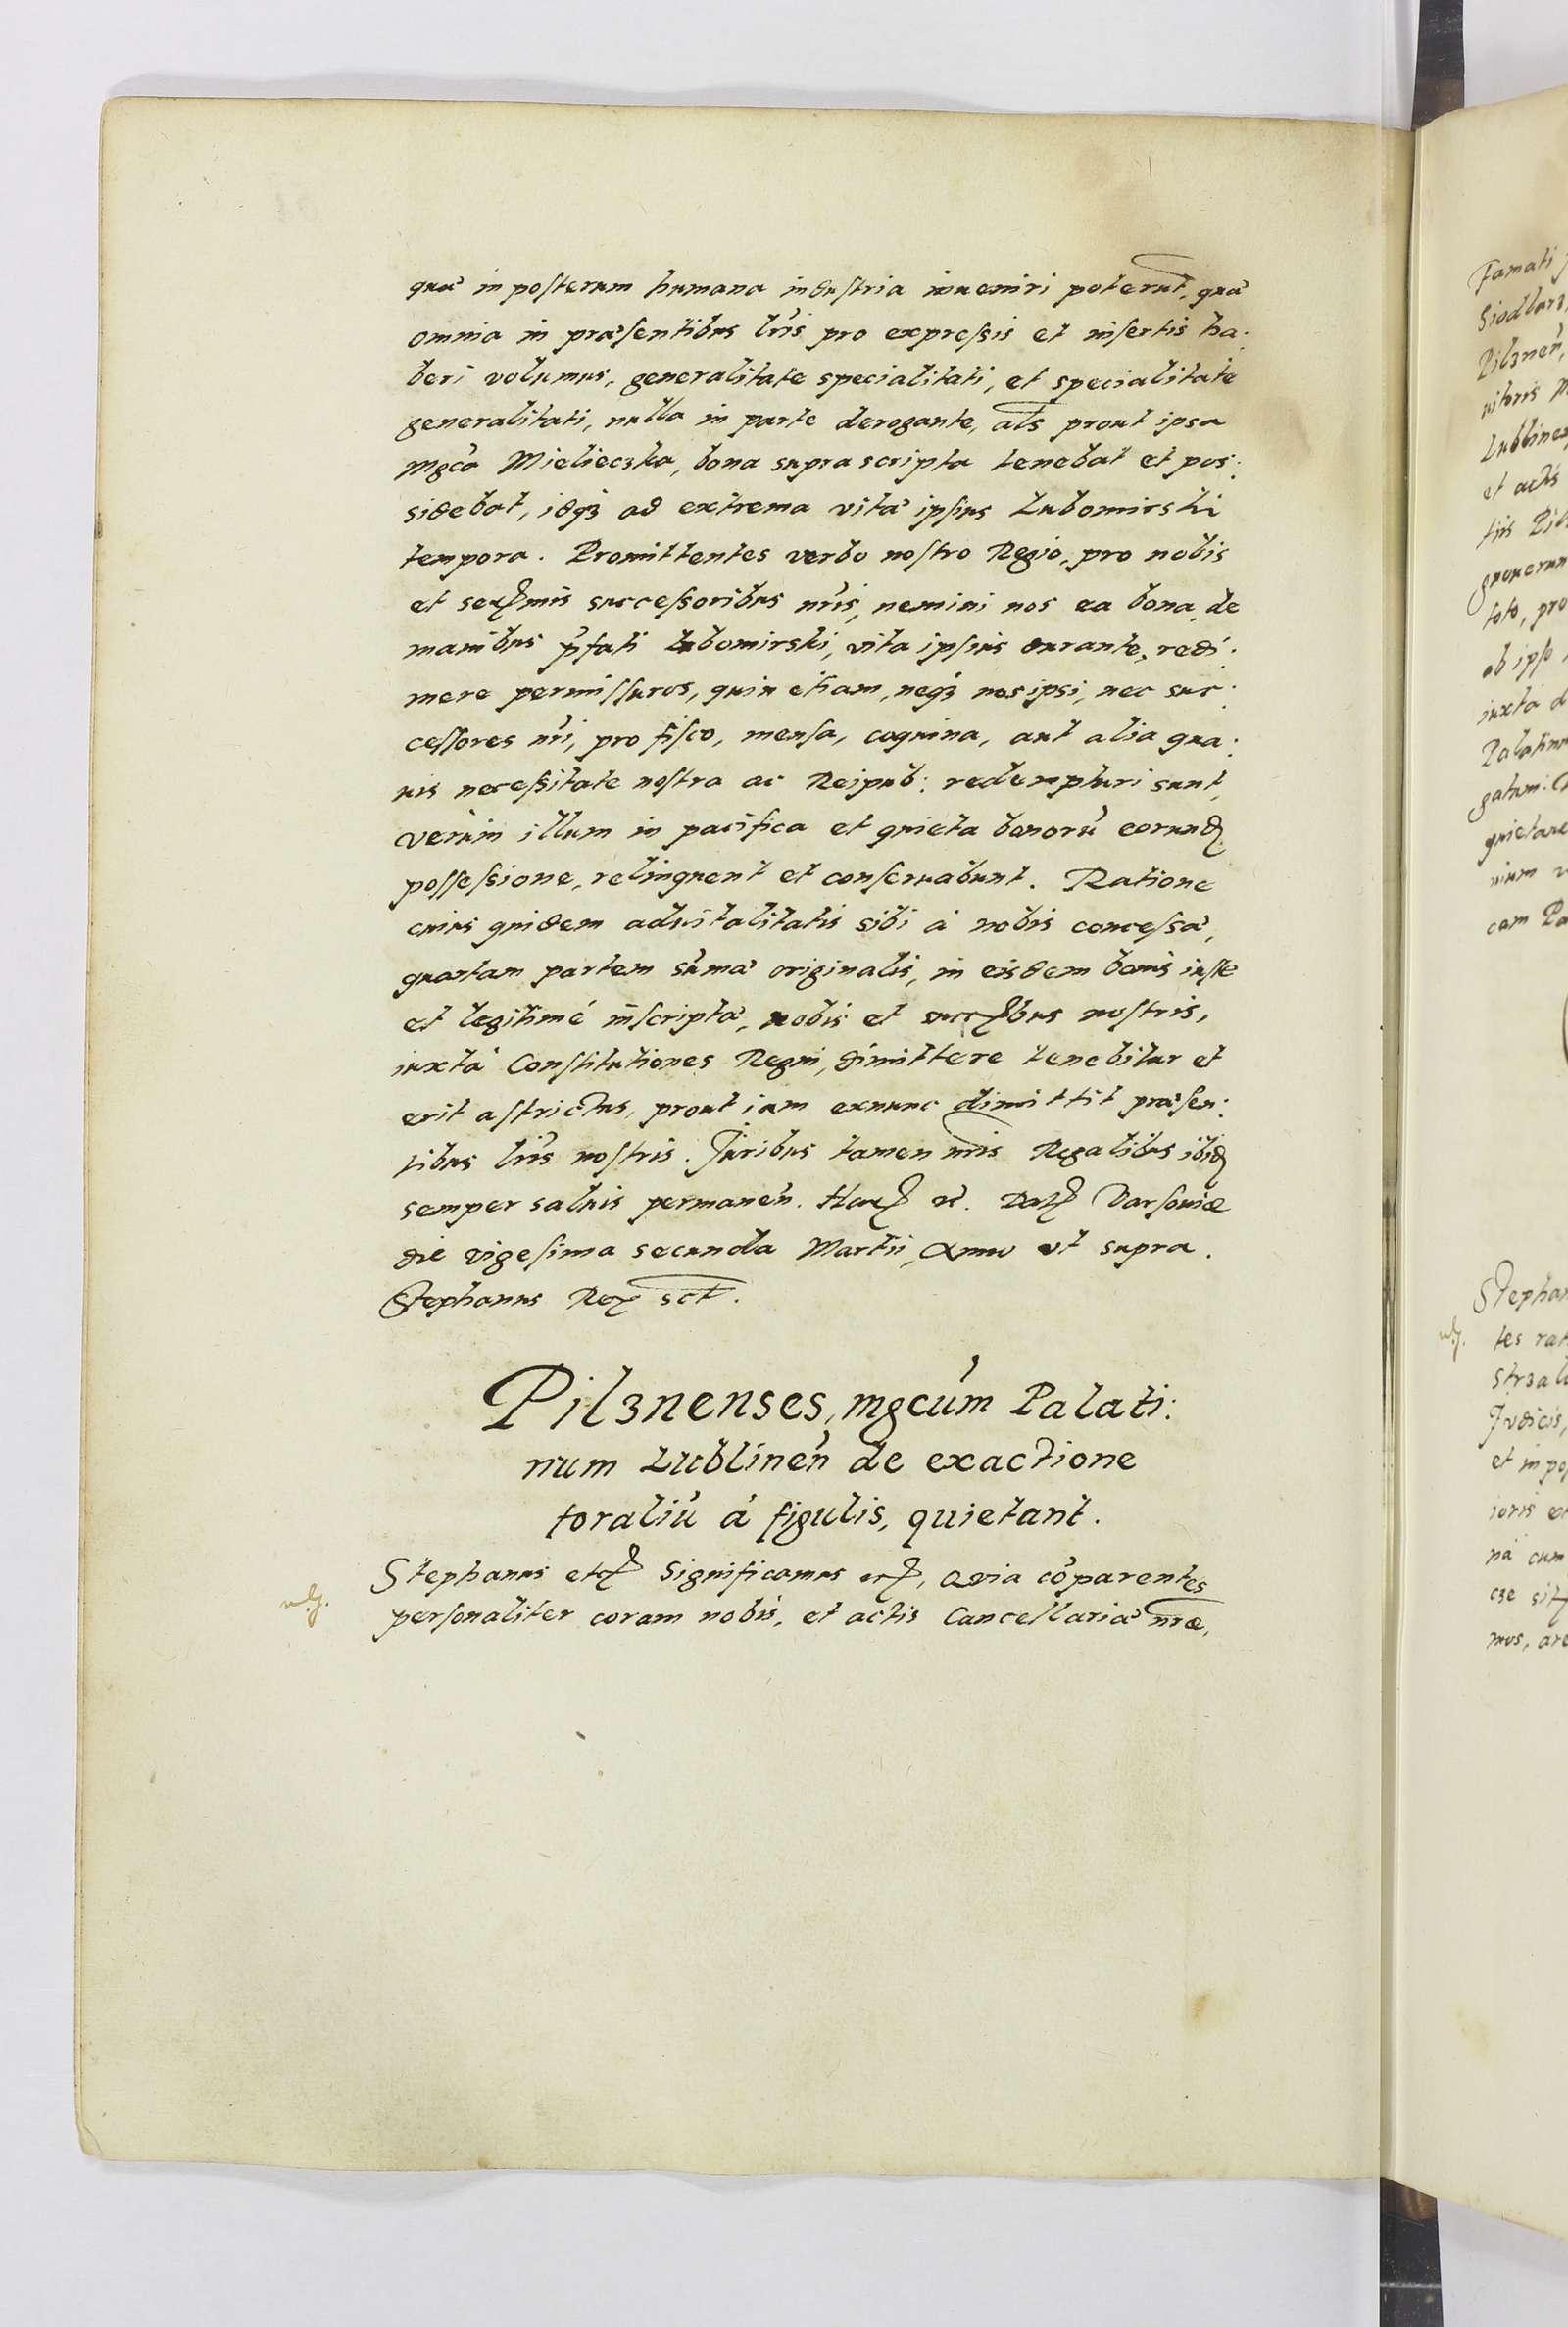 quæ in posterum humana industria inueniri poterut, quæ
omnia in præsentibus lr̃is pro expressis et insertis ha:
beri volumus, generalitate specialitati, et specialitate
generalitati, nulla in parte derogante, als prout ipsa
mgca Mielieczka, bona suprascripta tenebat et pos:
sidebat, idq3 ad extrema vitæ ipsius Lubomirski
tempora. Promittentes verbo nostro Regio, pro nobis
et successoribus nr̃is, nemini nos ea bona, de
manibus p̃fati Lubomirski, vita ipsius durante, redi:
mere permissuros, quin etiam, neq3 nos ipsi, nec suc:
cessores nr̃i, pro fisco, mensa, coquina, aut alia qua:
uis necessitate nostra ac Reipub: redempturi sunt,
verùm illum in pacifica et quieta bonorũ eorund
possessione, relinquent et conseruabunt. Ratione
cuius quidem aduitalitatis sibi à nobis concessæ,
quartam partem sũmæ originalis, in eisdem bonis iuste
et legitimé inscriptæ, nobis et succbus nostris,
iuxta Constitutiones Regni, dimittere tenebitur et
erit astrictus, prout iam exnunc dimittit præsen:
tibus lr̃is nostris. Juribus tamen nr̃is Regalibus ibid
semper saluis permaneñ. Har Dat Varsouiæ
die vigesima secunda Martii, Anno ut supra.
Stephanus Rex sct.
Pilznenses, mgcũm Palati:
num Lublineñ de exactione
foraliũ à figulis, quietant.
Stephanus etc Significamus etc, Quia cõparentes
personaliter coram nobis, et actis Cancellariæ nr̃æ,
Famati
Siodlarz
Pilzneñ,
Lublineñ
et actis
tiis Pil
toto, pro
ab ipso
iuxta d
Palatinu
gatam.
quietaue
cam Pa
Stephan
tes rat
Strzal
Judicis,
et in pos
ioris
na cum
cze sit
mus, are